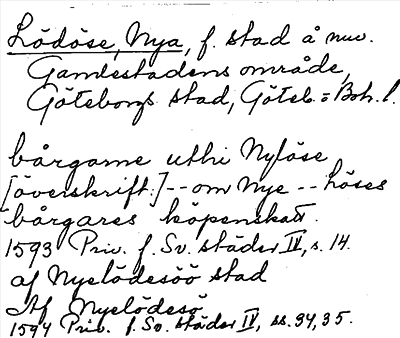 Lödöse, Nya, f. stad å nuv.
Gamlestadens område,
Göteborgs stad, Göteb. = Boh. l.
bårgarne uthi Nylöse
[överskrift:] -- om Nye -- löses
bårgares köpenskatt.
1593 Priv. f. Sv. städer IV, s. 14.
af Nyelödesöö stad
Af Nyelödesö
1594 Priv. f. Sv. städer IV, ss. 34, 35.